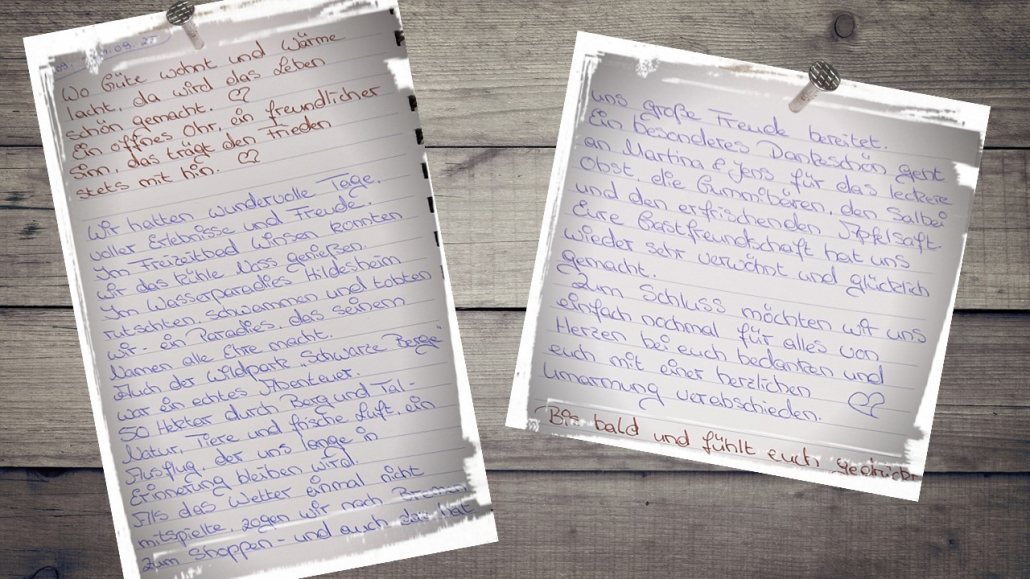 Wo Güte wohnt und Wärme
lacht, da wird das Leben
schön gemacht. ♡
Ein offnes Ohr, ein freundlicher
Sinn, das trägt den Frieden
stets mit hin. ♡
Wir hatten wundervolle Tage,
voller Erlebnisse und Freude.
Im Freizeitbad Winsen konnten
wir das kühle Nass genießen.
Im Wasserparadies Hildesheim
rutschten, schwammen und tobten
wir - ein Paradies, das seinem
Namen alle Ehre macht.
Auch der Wildpark „Schwarze Berge"
war ein echtes Abenteuer.
50 Hektar durch Berg und Tal -
Natur, Tiere und frische Luft, ein
Ausflug, der uns lange in
Erinnerung bleiben wird.
Als das Wetter einmal nicht
mitspielte, zogen wir nach Bremen
zum Shoppen - und auch das hat
uns große Freude bereitet.
Ein besonderes Dankeschön geht
an Martina & Jens für das leckere
Obst, die Gummibären, den Salbei
und den erfrischenden Apfelsaft.
Eure Gastfreundschaft hat uns
wieder sehr verwöhnt und glücklich
gemacht.
Zum Schluss möchten wir uns
einfach nochmal für alles von
Herzen bei euch bedanken und
euch mit einer herzlichen
Umarmung verabschieden. ♡
Bis bald und fühlt euch gedrückt